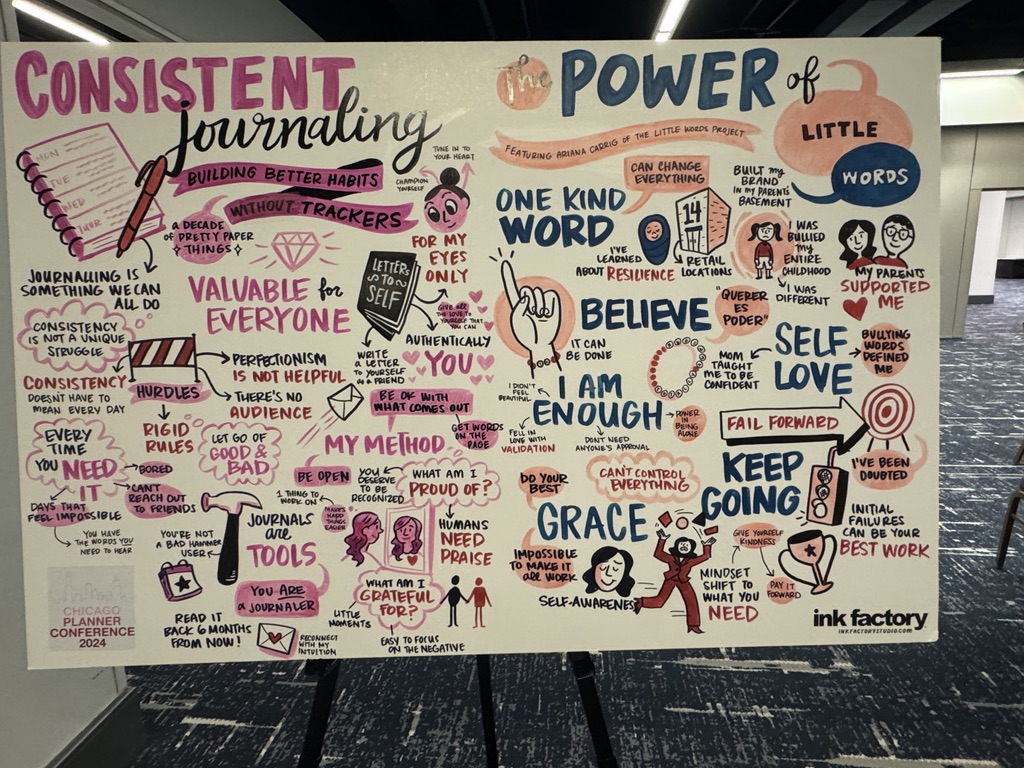 CONSISTENT
journaling
BUILDING BETTER HABITS
WITHOUT TRACKERS
MON
TUE
WED
THUR
A DECADE
OF PRETTY PAPER
THINGS
TUNE IN TO
YOUR HEART
CHAMPION
YOURSELF
FOR MY
EYES
ONLY
JOURNALLING IS
SOMETHING WE CAN
ALL DO
VALUABLE for
EVERYONE
LETTERS
TO
SELF
GIVE ALL
THE LOVE TO
YOURSELF THAT
YOU CAN
AUTHENTICALLY
YOU
WRITE
A LETTER
TO YOURSELF
AS A FRIEND
CONSISTENCY
IS NOT A UNIQUE
STRUGGLE
CONSISTENCY
DOESN'T HAVE TO
MEAN EVERY DAY
HURDLES
PERFECTIONISM
IS NOT HELPFUL
THERE'S NO
AUDIENCE
RIGID
RULES
BE OK WITH
WHAT COMES OUT
GET WORDS
ON THE
PAGE
MY METHOD
EVERY
TIME
YOU NEED
IT
BORED
CAN'T
REACH OUT
TO FRIENDS
DAYS THAT
FEEL IMPOSSIBLE
YOU HAVE
THE WORDS YOU
NEED TO HEAR
LET GO OF
GOOD &
BAD
BE OPEN
1 THING TO
WORK ON
MAKES
HARD
THINGS
EASIER
YOU
DESERVE
TO BE
RECOGNIZED
WHAT AM I
PROUD OF?
HUMANS
NEED
PRAISE
YOU'RE NOT
A BAD HAMMER
USER
JOURNALS
are
TOOLS
YOU ARE
a JOURNALER
WHAT AM I
GRATEFUL
FOR?
LITTLE
MOMENTS
EASY TO FOCUS
ON THE NEGATIVE
READ IT
BACK 6 MONTHS
FROM NOW!
RECONNECT
WITH MY
INTUITION
CHICAGO
PLANNER
CONFERENCE
2024
The POWER of
LITTLE
WORDS
FEATURING ARIANA CARRIG OF THE LITTLE WORDS PROJECT
CAN CHANGE
EVERYTHING
ONE KIND
WORD
14
I'VE
LEARNED
ABOUT RESILIENCE
RETAIL
LOCATIONS
BUILT my
BRAND
IN my PARENTS'
BASEMENT
I WAS
BULLIED
my
ENTIRE
CHILDHOOD
I WAS
DIFFERENT
MY PARENTS
SUPPORTED
ME
BELIEVE
"QUERER
ES
PODER"
IT CAN
BE DONE
MOM
TAUGHT
ME TO BE
CONFIDENT
SELF
LOVE
BULLYING
WORDS
DEFINED
ME
I DIDN'T
FEEL
BEAUTIFUL
I AM
ENOUGH
POWER
IN BEING
ALONE
FELL IN
LOVE WITH
VALIDATION
DON'T NEED
ANYONE'S APPROVAL
FAIL FORWARD
I'VE BEEN
DOUBTED
KEEP
GOING
INITIAL
FAILURES
CAN BE YOUR
BEST WORK
DO YOUR
BEST
CAN'T CONTROL
EVERYTHING
GRACE
IMPOSSIBLE
TO MAKE IT
all WORK
SELF-AWARENESS
GIVE YOURSELF
KINDNESS
PAY IT
FORWARD
MINDSET
SHIFT TO
WHAT YOU
NEED
ink factory
INKFACTORYSTUDIO.COM